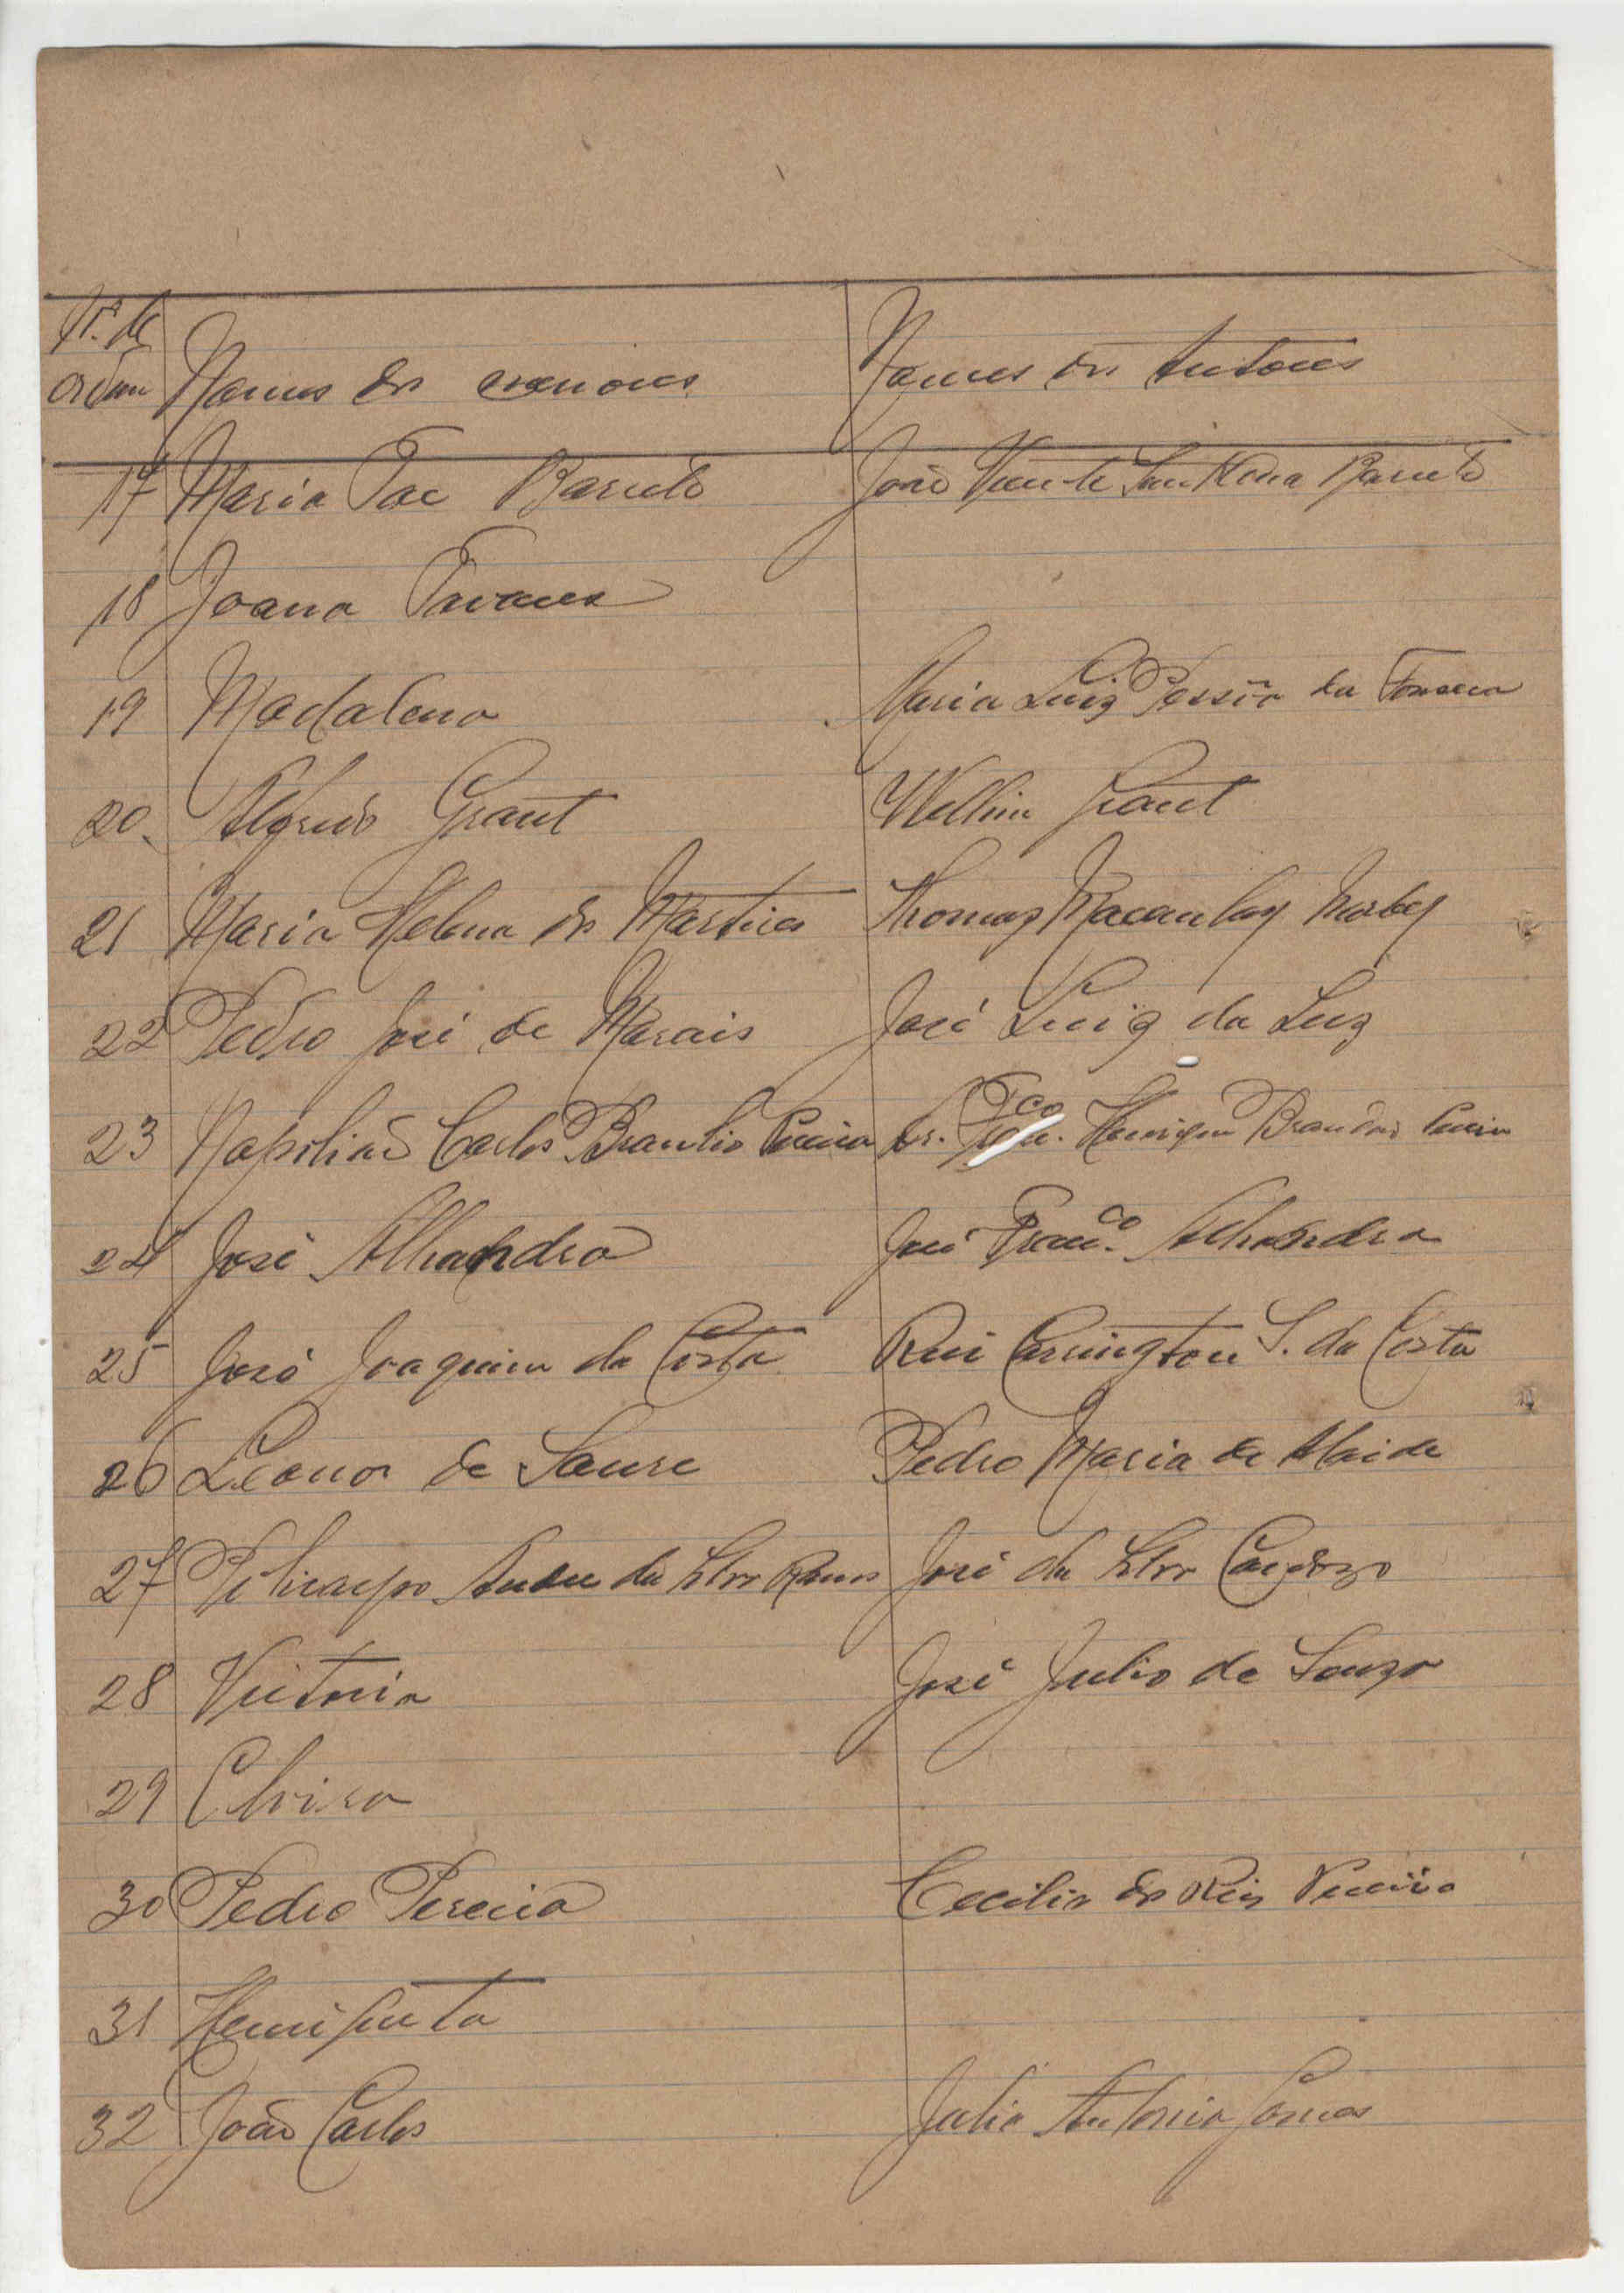 Nº. de
ordem Nomes dos menores Nomes dos Tutores
17 Maria Pae Barreto João Vicente Sant'Anna Barreto
18 Joana Tavares
19 Madalena Maria Luiz Pessôa da Fonseca
20 Alfredo Grant Grant
21 Maria Helena dos Martires Thomaz Macaulay
22 Pedro José de Morais José Luiz da Luz
23 Napolião Carlos Braulio Pereira Dr. Fco. Henrique Brandão Pereira
24 José Alhandra José Franco. Alhandra
25 José Joaquim da Costa Rui Carrington S. da Costa
26 Leonor de Saure Pedro Maria de Ataide
27 Policarpo da Silva Ramos José da Silva Cardozo
28 Victoria José Julio de Souza
29 Elvira
30 Pedro Pereira Cecilia dos Reis Pereira
31
32 João Carlos Julia Antonia Gomes